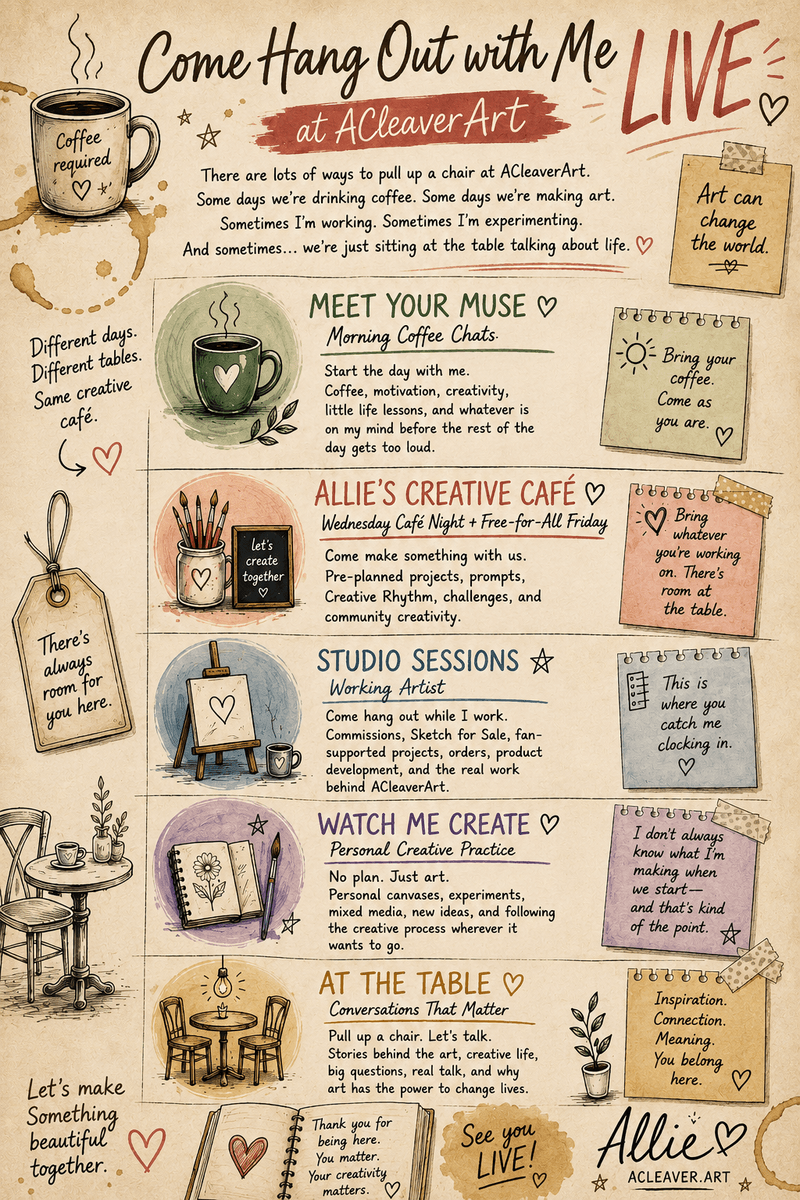 Come Hang Out with Me LIVE
at ACleaverArt
Coffee
required
There are lots of ways to pull up a chair at ACleaverArt.
Some days we're drinking coffee. Some days we're making art.
Sometimes I'm working. Sometimes I'm experimenting.
And sometimes... we're just sitting at the table talking about life.
Art can
change
the world.
Different days.
Different tables.
Same creative
café.
MEET YOUR MUSE
Morning Coffee Chats.
Start the day with me.
Coffee, motivation, creativity,
little life lessons, and whatever is
on my mind before the rest of the
day gets too loud.
Bring your
coffee.
Come as
you are.
ALLIE'S CREATIVE CAFÉ
Wednesday Café Night + Free-for-All Friday
let's
create
together
Come make something with us.
Pre-planned projects, prompts,
Creative Rhythm, challenges, and
community creativity.
Bring
whatever
you're working
on. There's
room at
the table.
There's
always
room for
you here.
STUDIO SESSIONS
Working Artist
Come hang out while I work.
Commissions, Sketch for Sale, fan-
supported projects, orders, product
development, and the real work
behind ACleaverArt.
This is
where you
catch me
clocking in.
WATCH ME CREATE
Personal Creative Practice
No plan. Just art.
Personal canvases, experiments,
mixed media, new ideas, and following
the creative process wherever it
wants to go.
I don't always
know what I'm
making when
we start—
and that's kind
of the point.
AT THE TABLE
Conversations That Matter
Pull up a chair. Let's talk.
Stories behind the art, creative life,
big questions, real talk, and why
art has the power to change lives.
Inspiration.
Connection.
Meaning.
You belong
here.
Let's make
Something
beautiful
together.
Thank you for
being here.
You matter.
Your creativity
matters.
See you
LIVE!
Allie
ACLEAVER.ART